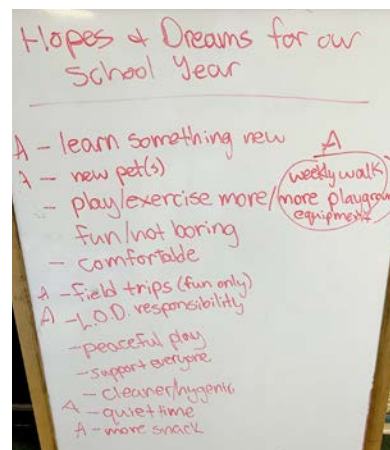 Hopes & Dreams for our
School Year
A - learn something new
A - new pet(s)
- play/exercise more/
A
weekly walk
more playground
equipment
fun/not boring
- comfortable
A - field trips (fun only)
A - L.O.D. responsibility
- peaceful play
- support everyone
- cleaner/hygenic
A - quiet time
A - more snack